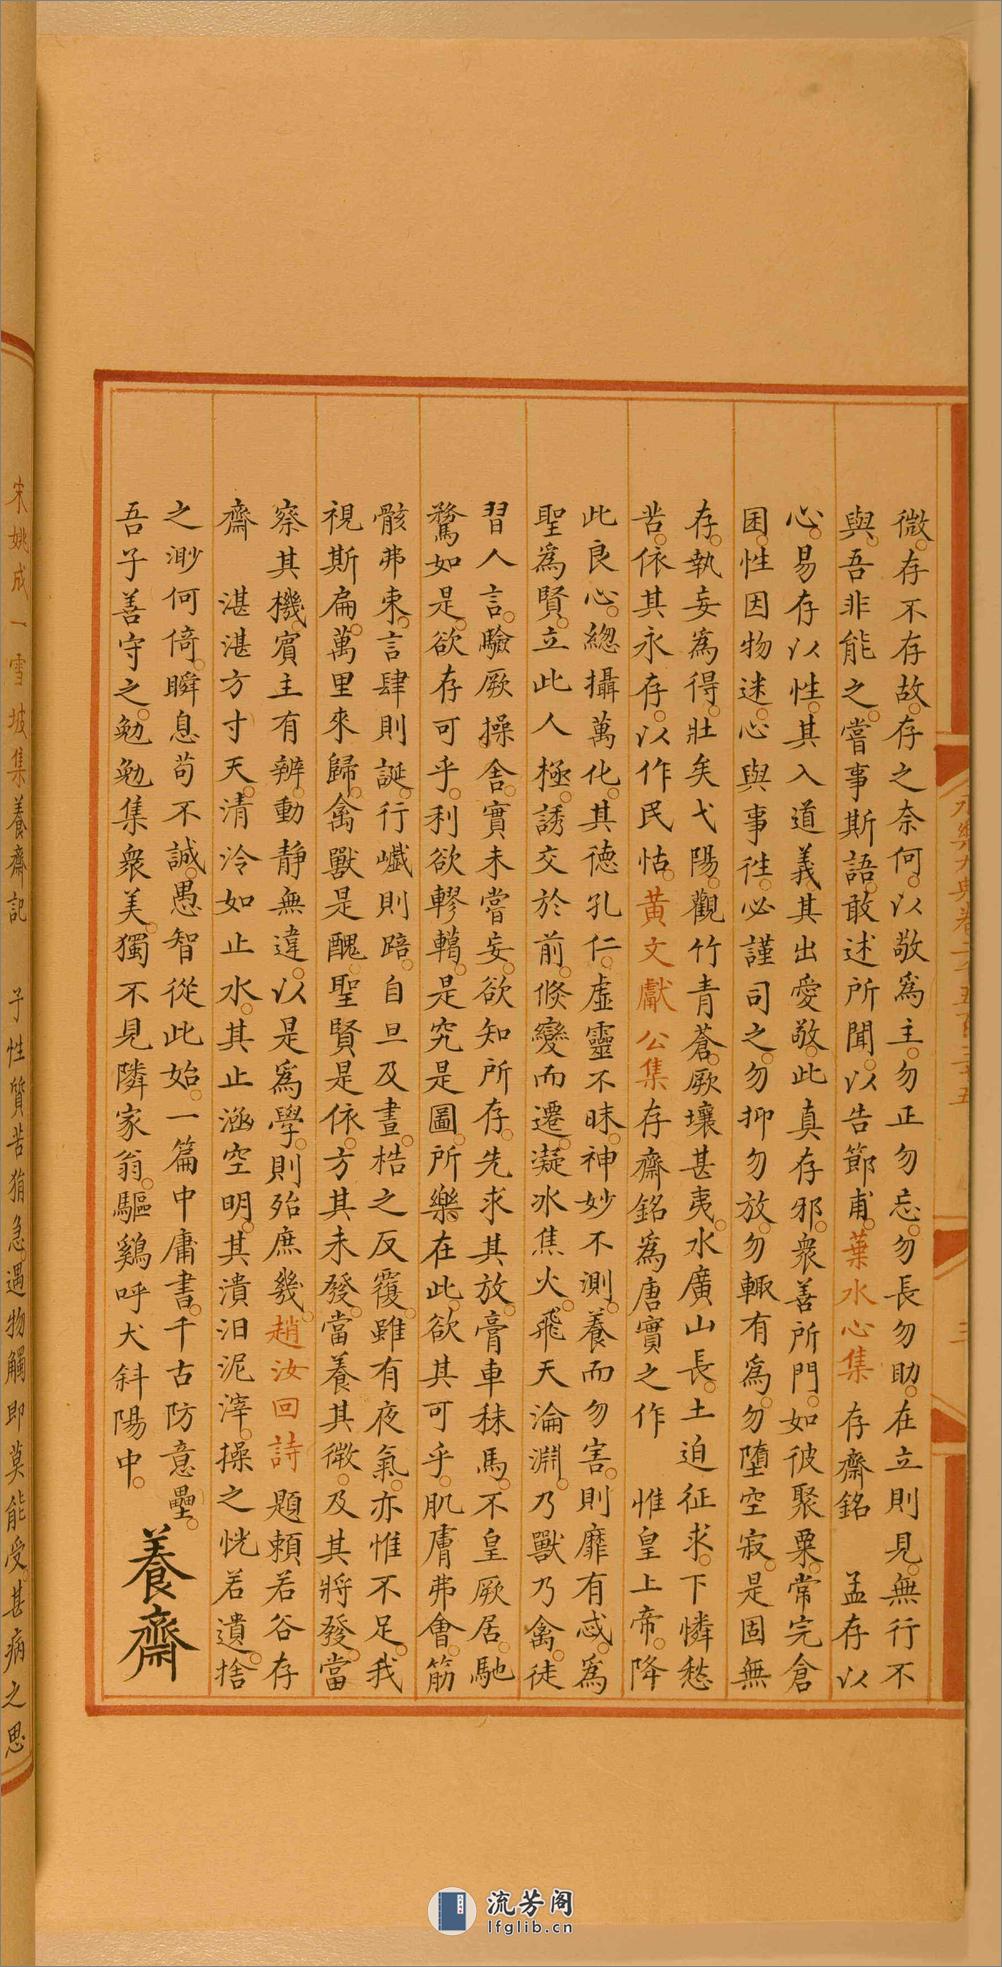 微。存不存故。存之奈何。以敬爲主。勿正勿忘。勿長勿助。在立則見。無行不
與。吾非能之。嘗事斯語。敢述所聞。以告節甫。葉水心集 存齋銘 孟存以
心。易存以性。其入道義。其出愛敬。此真存邪。衆善所門。如彼聚粟。常完倉
困。性因物迷。心與事徃。必謹司之。勿抑勿放。勿輙有爲。勿墮空寂。是固無
存。執妄爲得。壯矣弋陽。觀竹青蒼。厥壤甚夷。水廣山長。土迫征求。下憐愁
苦。依其永存。以作民怙。黄文獻公集存齋銘爲唐實之作 惟皇上帝。降
此良心。緫攝萬化。其德孔仁。虛靈不昧。神妙不測。養而勿害。則靡有忒。爲
聖爲賢。立此人極。誘交於前。倐變而遷。凝冰焦火。飛天淪淵。乃獸乃禽。徒
習人言。驗厥操舍。實未嘗妄。欲知所存。先求其放。膏車秣馬。不皇厥居。馳
騖如是。欲存可乎。利欲轇轕。是究是圖。所樂在此。欲其可乎。肌膚弗㑹。筋
骸弗束。言肆則誕。行巇則踣。自旦及晝。梏之反覆。雖有夜氣。亦惟不足。我
視斯扁。萬里來歸。禽獸是醜。聖賢是依。方其未發。當養其微。及其將發。當
察其機。賓主有辨。動静無違。以是爲學。則殆庶幾。趙汝回詩 題頼若谷存
齋 湛湛方寸天。清泠如止水。其止涵空明。其潰汨泥滓。操之恍若遺。捨
之渺何倚。瞬息苟不誠。愚智從此始。一篇中庸書。千古防意壘。
吾子善守之。勉勉集衆美。獨不見隣家翁。驅雞呼犬斜陽中。養齋
永樂大典卷二千五百三十五
三
宋姚成一雪坡集養齋記 子性質苦狷急遇物觸即莫能受甚病之思
流芳阁
lfglib.cn